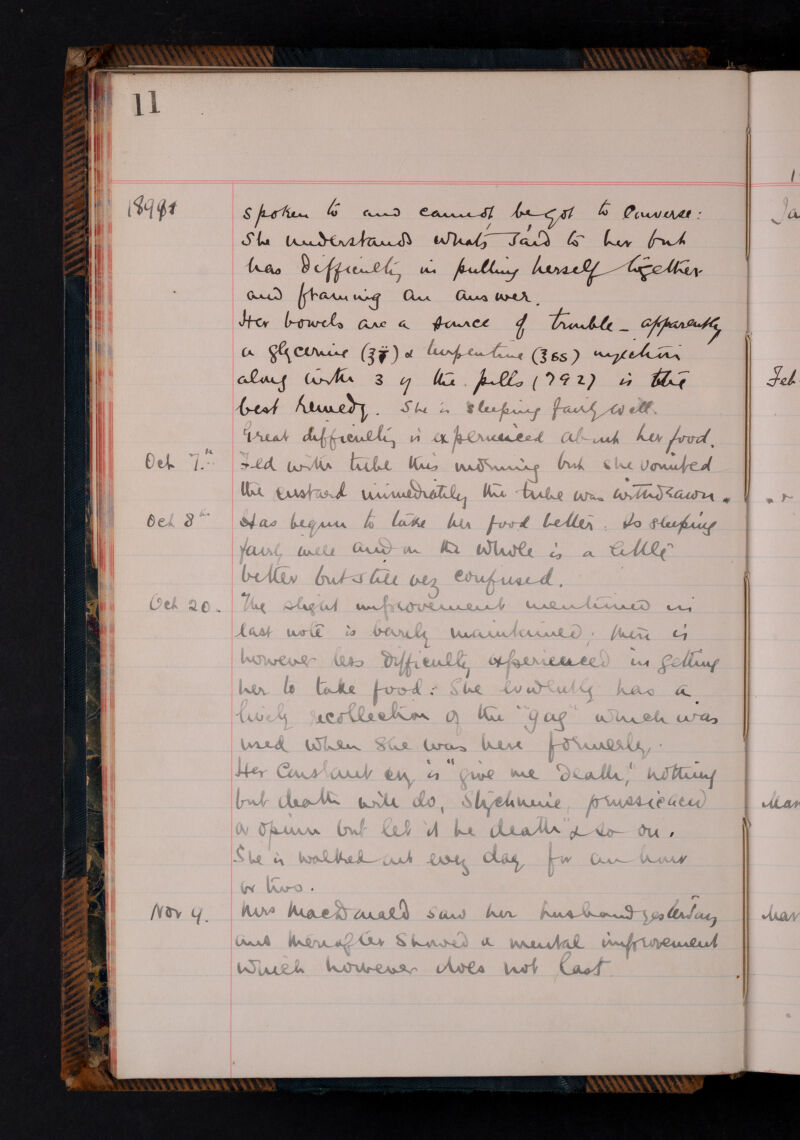 11
spoken to and cannot be got to converse:
She understands whats said to her but
has difficulty in pulling herself together
and framing an answer.
Her bowels are a source of trouble - apparently
a glycerine & turpentine injection
along with 3 of the pills (792) is the
best remedy. She is sleeping fairly well.
Great difficulty is experienced about her food.
Oct 7th Fed with tube this morning but she vomited
the custard immediately the tube was withdrawn.
Oct 8th Has begun to take her food better. Is sleeping
fairly well and on the whole is a little
better but still very confused.
Oct 20. The slight improvement mentioned in
last note is barely maintained; there is
however less difficulty experienced in getting
her to take food: She evidently has a
lively recollection of the "gag" which was
used when she was here formerly.
Her constant cry is "give me death," nothing
but death will do, Strychnine, prussic acid
or opium but let it be death" & so on.
She is walked out every day for an hour
or two.
Nov 4. Mrs MacDonald saw her husband yesterday
and thereafter showed a mental improvement
which however does not last
Feb
Mar
Mar